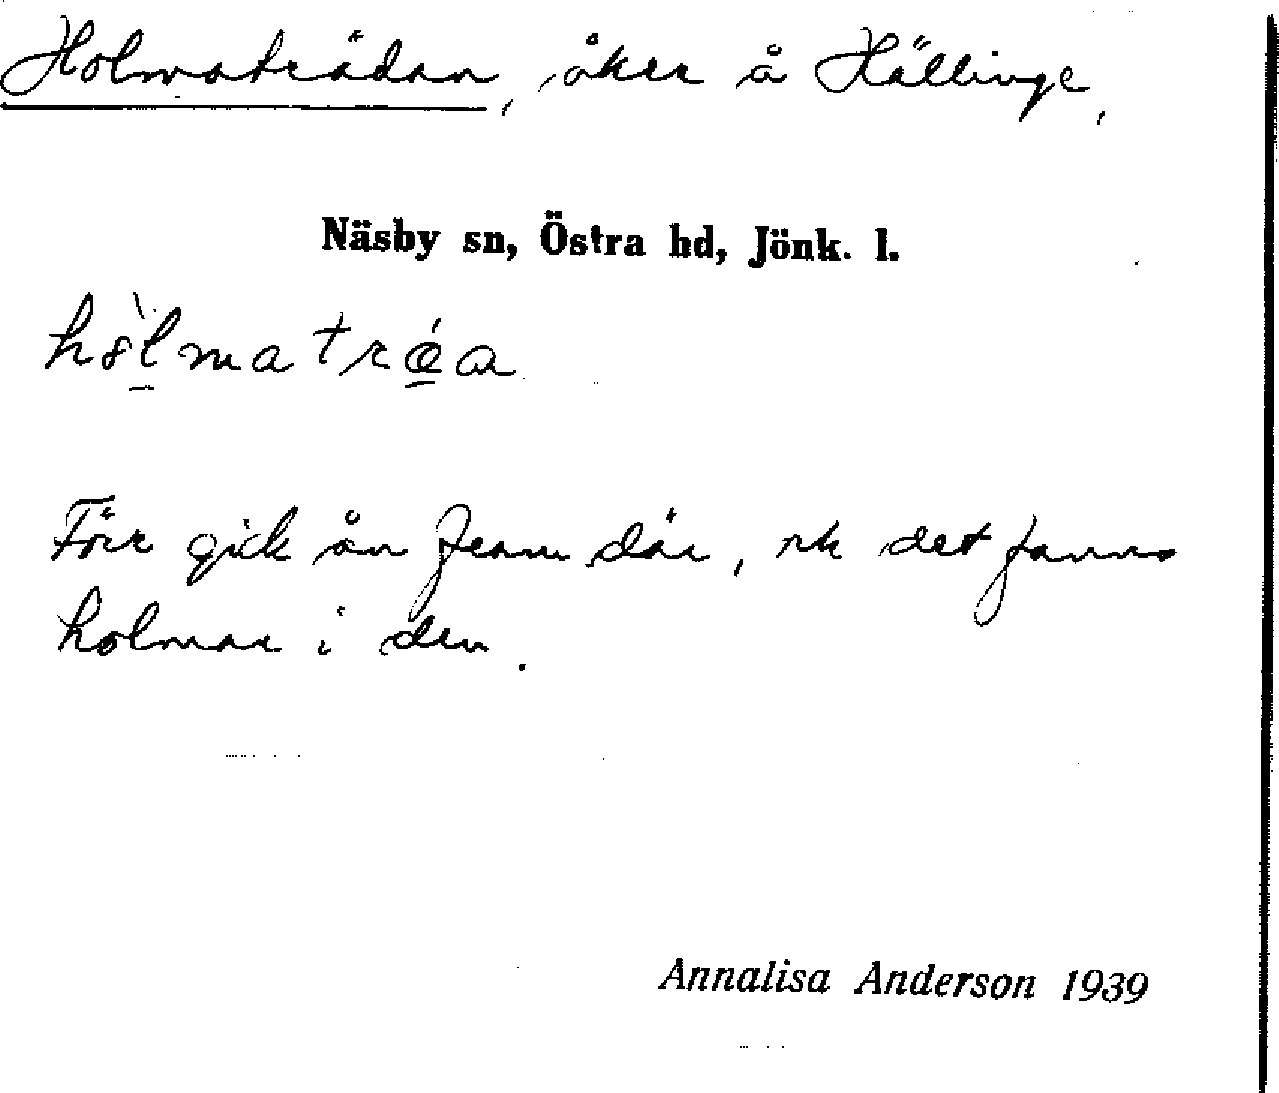 Holmaträdan, åker å Hällinge,
Näsby sn, Östra hd, Jönk. l.
Förr gick ån fram där, och det fanns
holmar i den.
Annalisa Anderson 1939